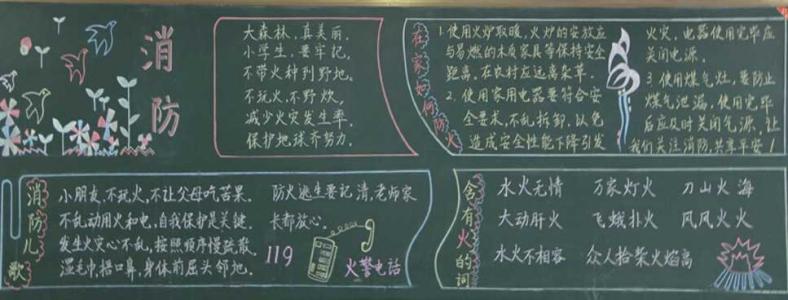 消防
大森林,真美丽.
小学生,要牢记.
不带火种到野地.
不玩火,不野炊,
减少火灾发生率.
保护地球齐努力.
在家如何防火
1.使用火炉取暖,火炉的安放应
与易燃的木质家具等保持安全
距离,在农村应远离柴草.
2.使用家用电器要符合安
全要求,不乱拆卸.以免
造成安全性能下降引发
火灾,电器使用完毕应
关闭电源.
3.使用煤气灶,要防止
煤气泄漏,使用完毕
后应及时关闭气源,让
我们关注消防,共享平安!
消防儿歌
小朋友,不玩火,不让父母吃苦果.
不乱动用火和电,自我保护是关键.
发生火灾心不乱,按照顺序慢疏散.
湿毛巾,捂口鼻,身体前屈头邻地.
防火逃生要记清,老师家
长都放心.
119
火警电话
含有火的词
水火无情 万家灯火 刀山火海
大动肝火 飞蛾扑火 风风火火
水火不相容 众人拾柴火焰高